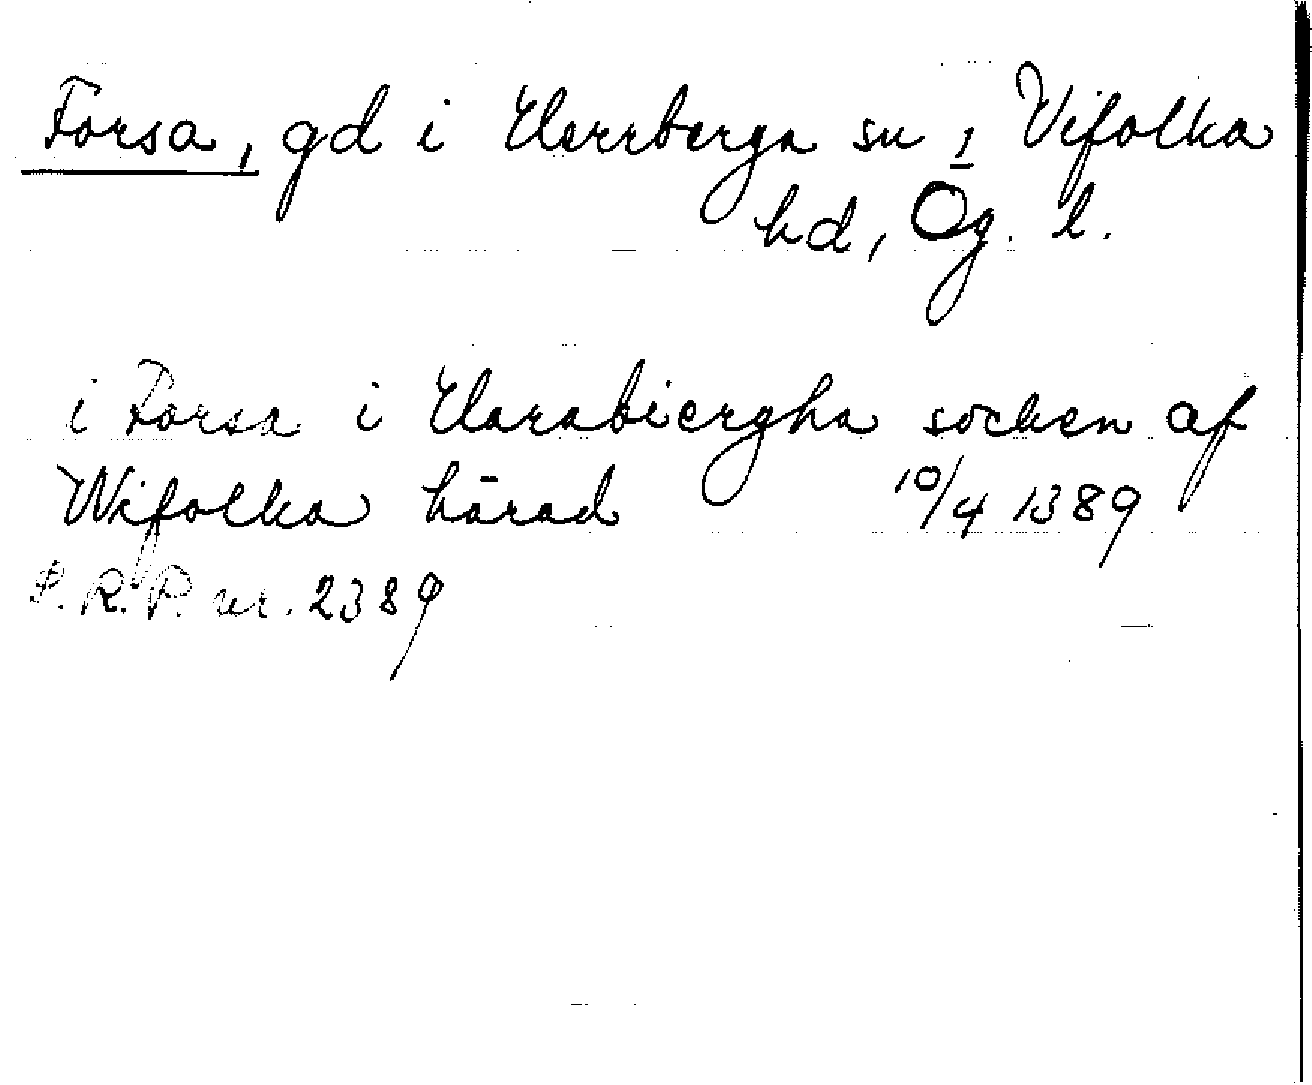 Forsa, gd i Herrberga sn, Vifolka
hd, Ög. l.
i Forsa i Harabiergha socken af
Wifolka härad 10/4 1389
S. R. P. nr. 2389